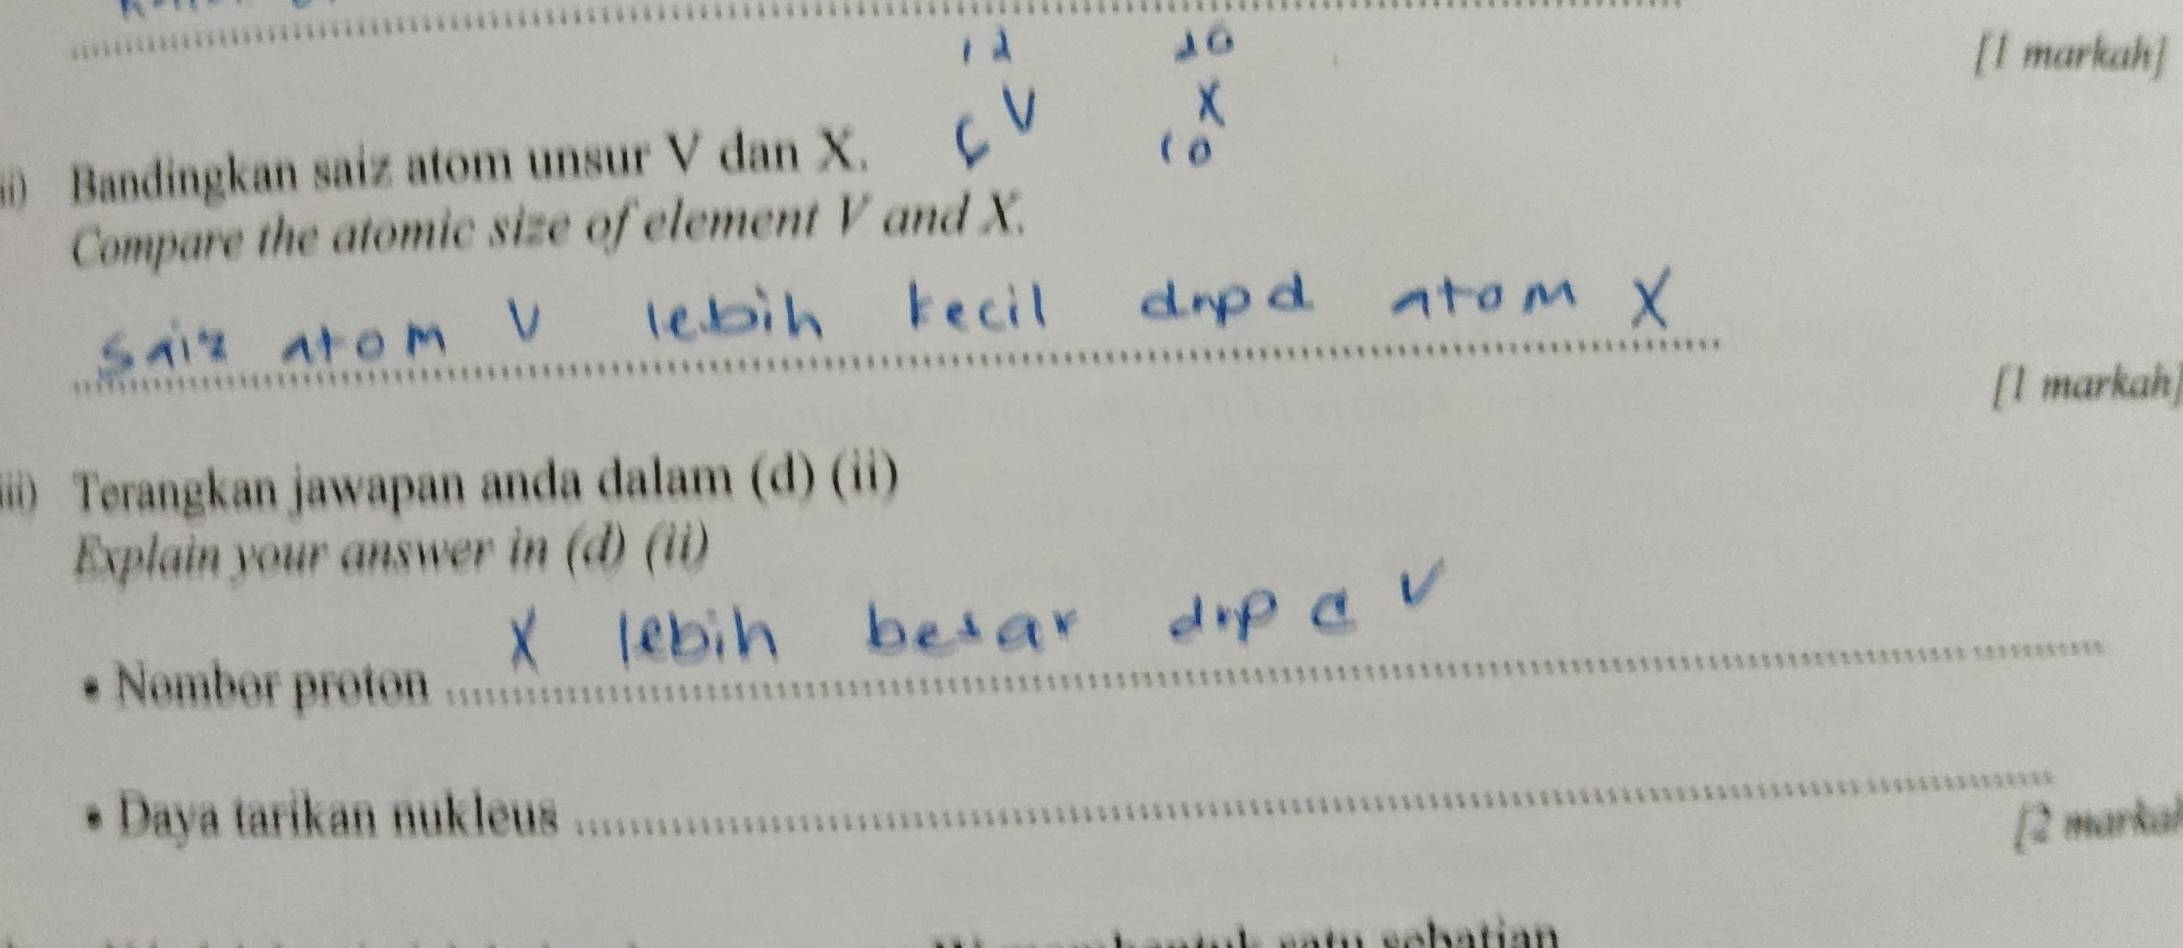 [1 markah]
12 20
V X
6 10
ii) Bandingkan saiz atom unsur V dan X.
Compare the atomic size of element V and X.
saiz atom V lebih kecil drpd atom X
[1 markah]
iii) Terangkan jawapan anda dalam (d) (ii)
Explain your answer in (d) (ii)
• Nombor proton X lebih besar drpd V
• Daya tarikan nukleus
[2 markah
satu sebatian